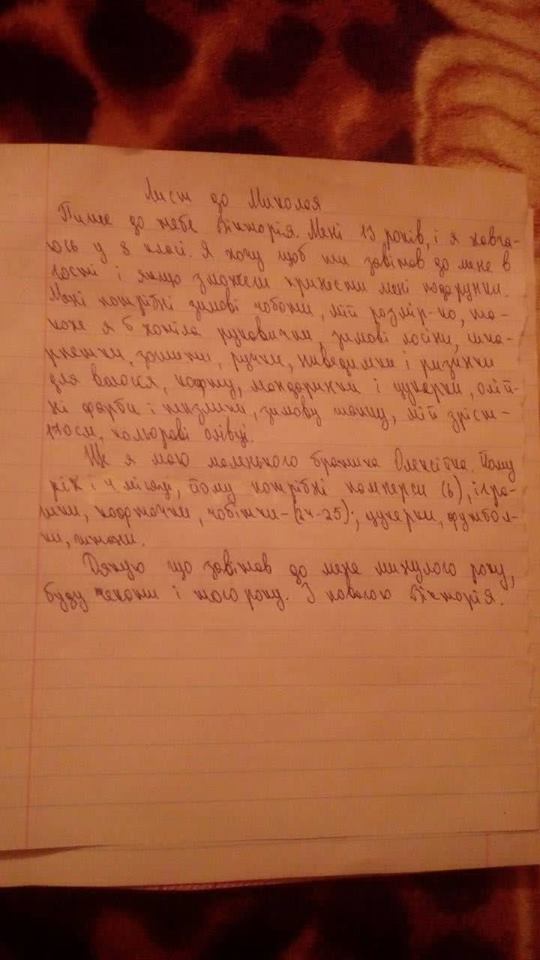 Лист до Миколая
Пише до тебе Вікторія. Мені 13 років, і я навча-
юсь у 8 класі. Я хочу щоб ти завітав до мене в
гості і якщо зможеш принести мені подарунки.
Мені потрібні зимові чоботи, мій розмір-40, та-
кож я б хотіла рукавички, зимові лосіни, шка-
рпетки, зошити, ручки, невидимки і резинки
для волосся, кофту, мандаринки і цукерки, олій-
ні фарби і пензлики, зимову шапку, мій зріст-
170см, кольорові олівці.
Ще я маю маленького братика Олексійка. Йому
рік і 4 місяці, йому потрібні памперси (6), ігра-
шки, кофточки, чобітки-(24-25); цукерки, футбол-
ки, штани.
Дякую що завітав до мене минулого року,
буду чекати і того року. З повагою Вікторія.